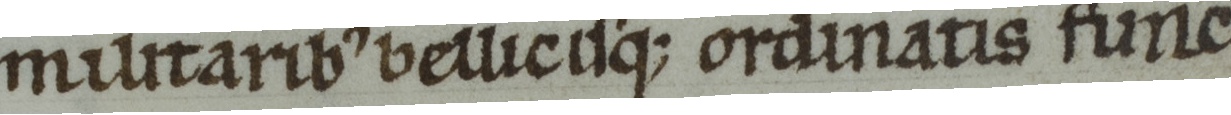 militarib⁹ bellicisq; ordinatis func